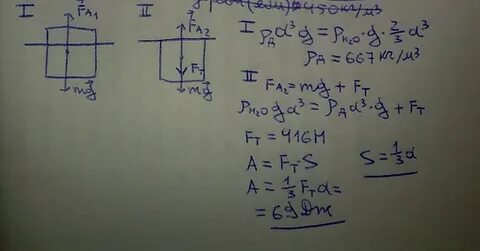 450 кг/м³
I
F_A₁
mg
II
F_A₂
F_T
mg
I ρ_д a³ g = ρ_H₂O · g · 2/3 a³
ρ_д = 667 кг/м³
II F_A₂ = mg + F_T
ρ_H₂O g a³ = ρ_д a³ · g + F_T
F_T = 416 Н
A = F_T · S
S = 1/3 a
A = 1/3 F_T a =
= 69 Дж